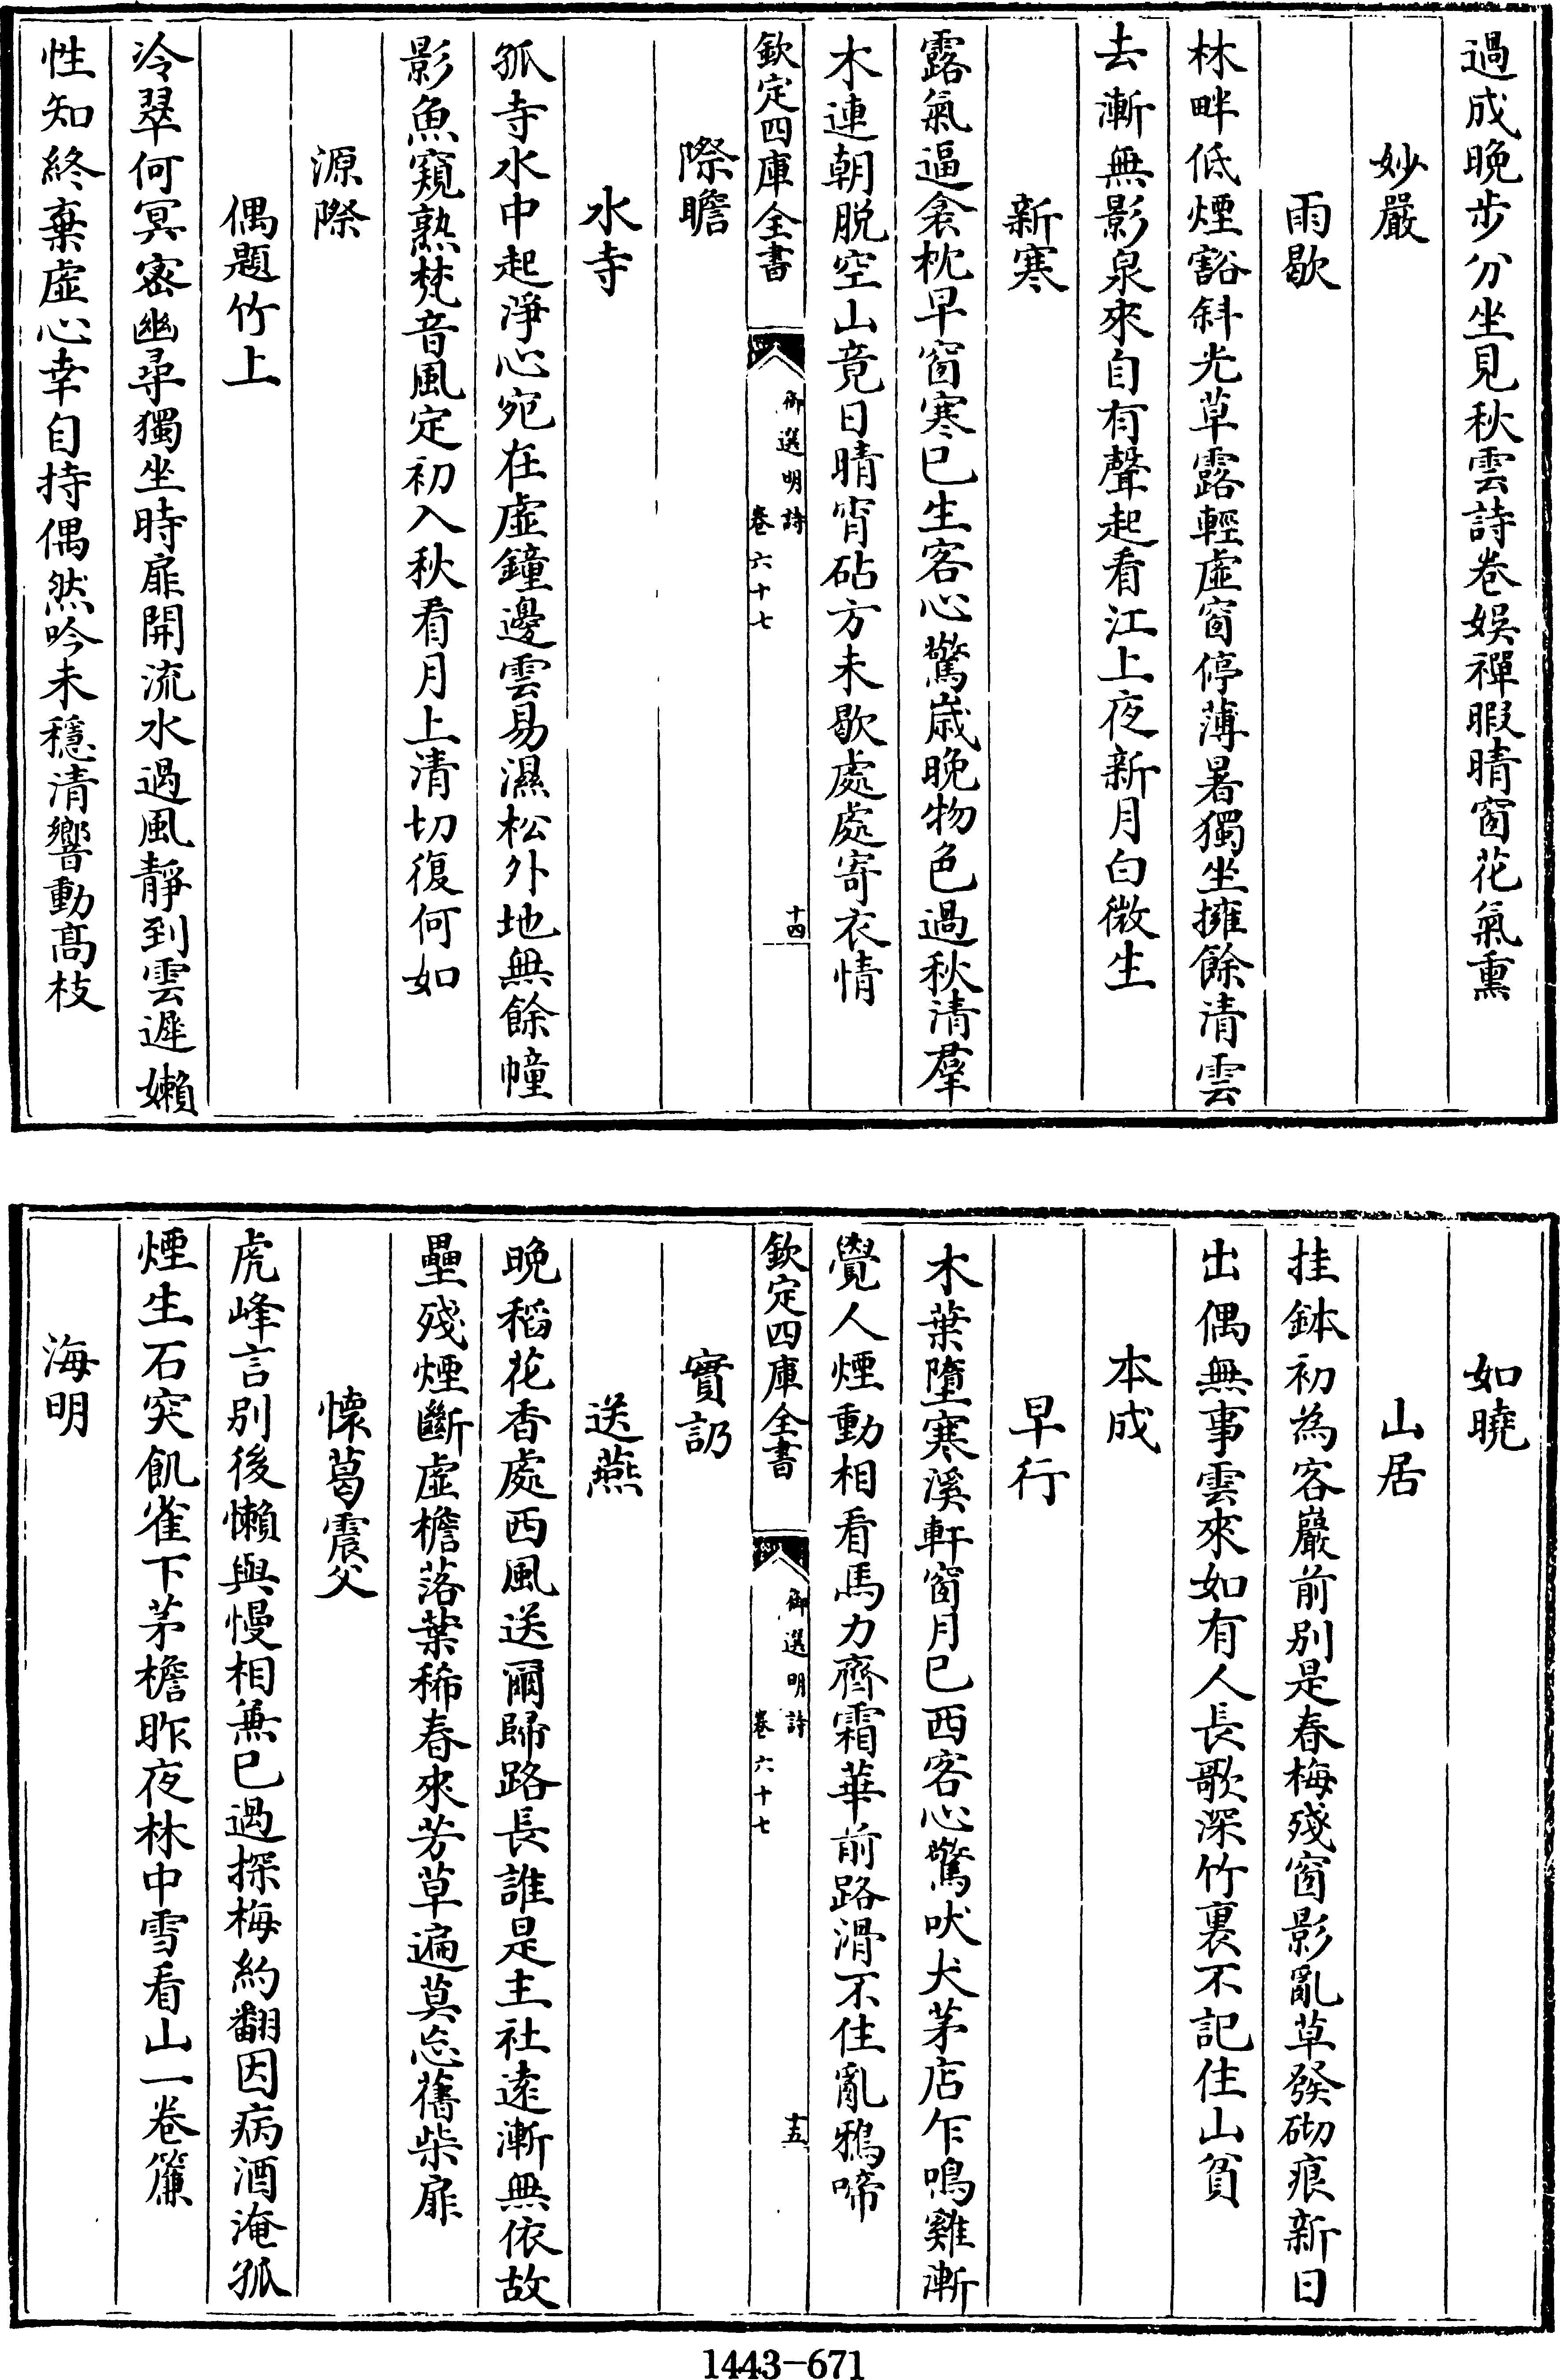 過成晚步分坐見秋雲詩卷娛禪暇晴窗花氣熏
妙嚴
雨歇
林畔低煙豁斜光草露輕虛窗停薄暑獨坐擁餘清雲
去漸無影泉來自有聲起看江上夜新月白微生
新寒
露氣逼衾枕早窗寒已生客心驚歲晚物色過秋清羣
木連朝脫空山竟日晴宵砧方未歇處處寄衣情
欽定四庫全書
御選明詩
卷六十七
十四
際瞻
水寺
孤寺水中起淨心宛在虛鐘邊雲易濕松外地無餘幢
影魚窺熟梵音風定初入秋看月上清切復何如
源際
偶題竹上
冷翠何冥密幽尋獨坐時扉開流水過風靜到雲遲嬾
性知終棄虛心幸自持偶然吟未穩清響動高枝
如曉
山居
挂鉢初為客巖前別是春梅殘窗影亂草發砌痕新日
出偶無事雲來如有人長歌深竹裏不記住山貧
本成
早行
木葉墮寒溪軒窗月已西客心驚吠犬茅店乍鳴雞漸
覺人煙動相看馬力齊霜華前路滑不住亂鴉啼
欽定四庫全書
御選明詩
卷六十七
十五
實訒
送燕
晚稻花香處西風送爾歸路長誰是主社遠漸無依故
壘殘煙斷虛檐落葉稀春來芳草遍莫忘舊柴扉
懷葛震父
虎峰言別後懶與慢相兼已過探梅約翻因病酒淹孤
煙生石突飢雀下茅檐昨夜林中雪看山一卷簾
海明
1443-671